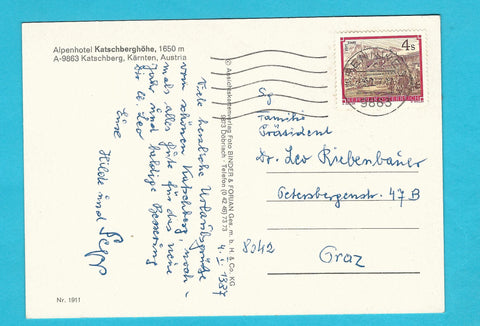 Alpenhotel Katschberghöhe, 1650 m
A-9863 Katschberg, Kärnten, Austria
Viele herzliche Urlaubsgrüße
vom schönen Katschberg, noch-
mals alles gute für das neue
Jahr und baldige Besserung
Dir lb. Leo
Eure
Hilde und Sepp
4. I. 1987
© Ansichtskartenverlag Foto BINDER & FORIAN Ges. m. b. H. & Co. KG
9873 Döbriach · Telefon (0 42 46) 73 73
4 S
REPUBLIK ÖSTERREICH
9863
Familie
Präsident
Dr. Leo Riebenbauer
Petersbergenstr. 47 B
8042
Graz
Nr. 1911